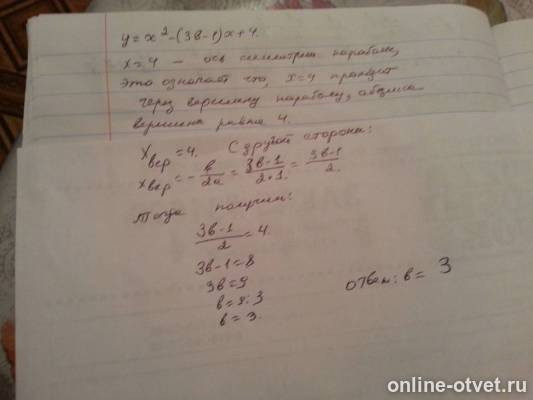 y = x² - (3в-1)x + 4.
x = 4 – ось симметрии параболы,
Это означает что, x=4 проходит
через вершину параболы, абцисса
вершина равна 4.
xвер = 4. С другой стороны:
xвер = - в/2a = 3в-1/2·1 = 3в-1/2.
Тогда получим:
3в-1/2 = 4.
3в-1=8
3в=9
в=9:3
в=3.
ответ: в= 3
online-otvet.ru